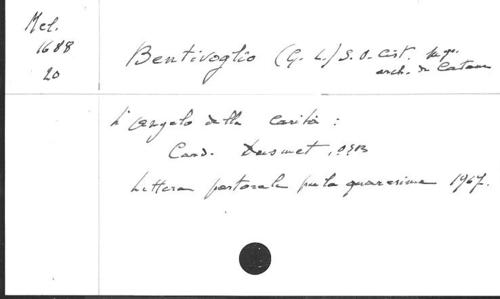 Mel.
1688
20
Bentivoglio (G. L.) S. O. Cist. 
arch. di Catania
L'Angelo della Carità :
Card. Dusmet, OSB
Lettera pastorale per la quaresima 1967.